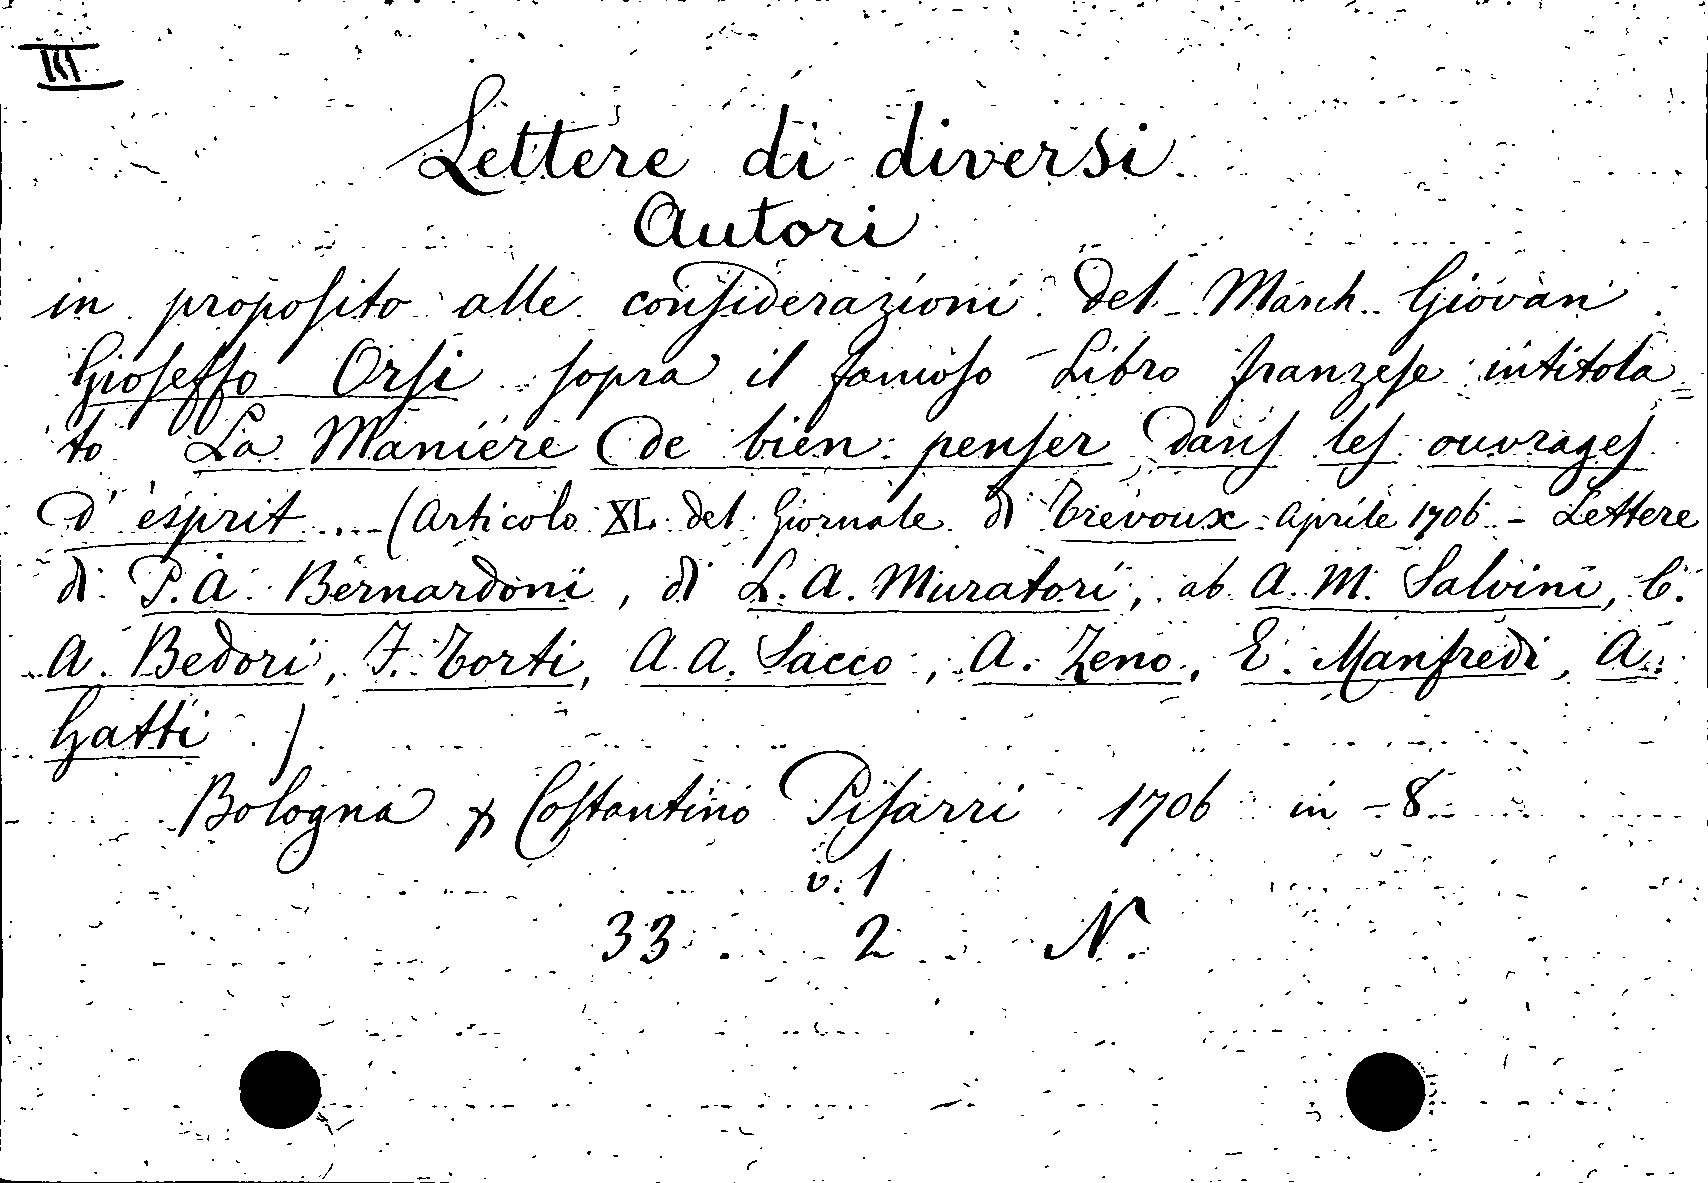 III
Lettere di diversi
Autori
in proposito alle considerazioni del March. Giovan
Gioseffo Orsi sopra il famoso Libro franzese intitola=
to La Maniére de bien penser dans les ouvrages
d'esprit ... (Articolo XL del Giornale di Trévoux Aprile 1706 - Lettere
di P. A. Bernardoni, di L. A. Muratori, ab A. M. Salvini, C.
A. Bedori, F. Torti, A. A. Sacco, A. Zeno, E. Manfredi, A.
Gatti)
Bologna Costantino Pisarri 1706 in-8
v. 1
33. 2 N.